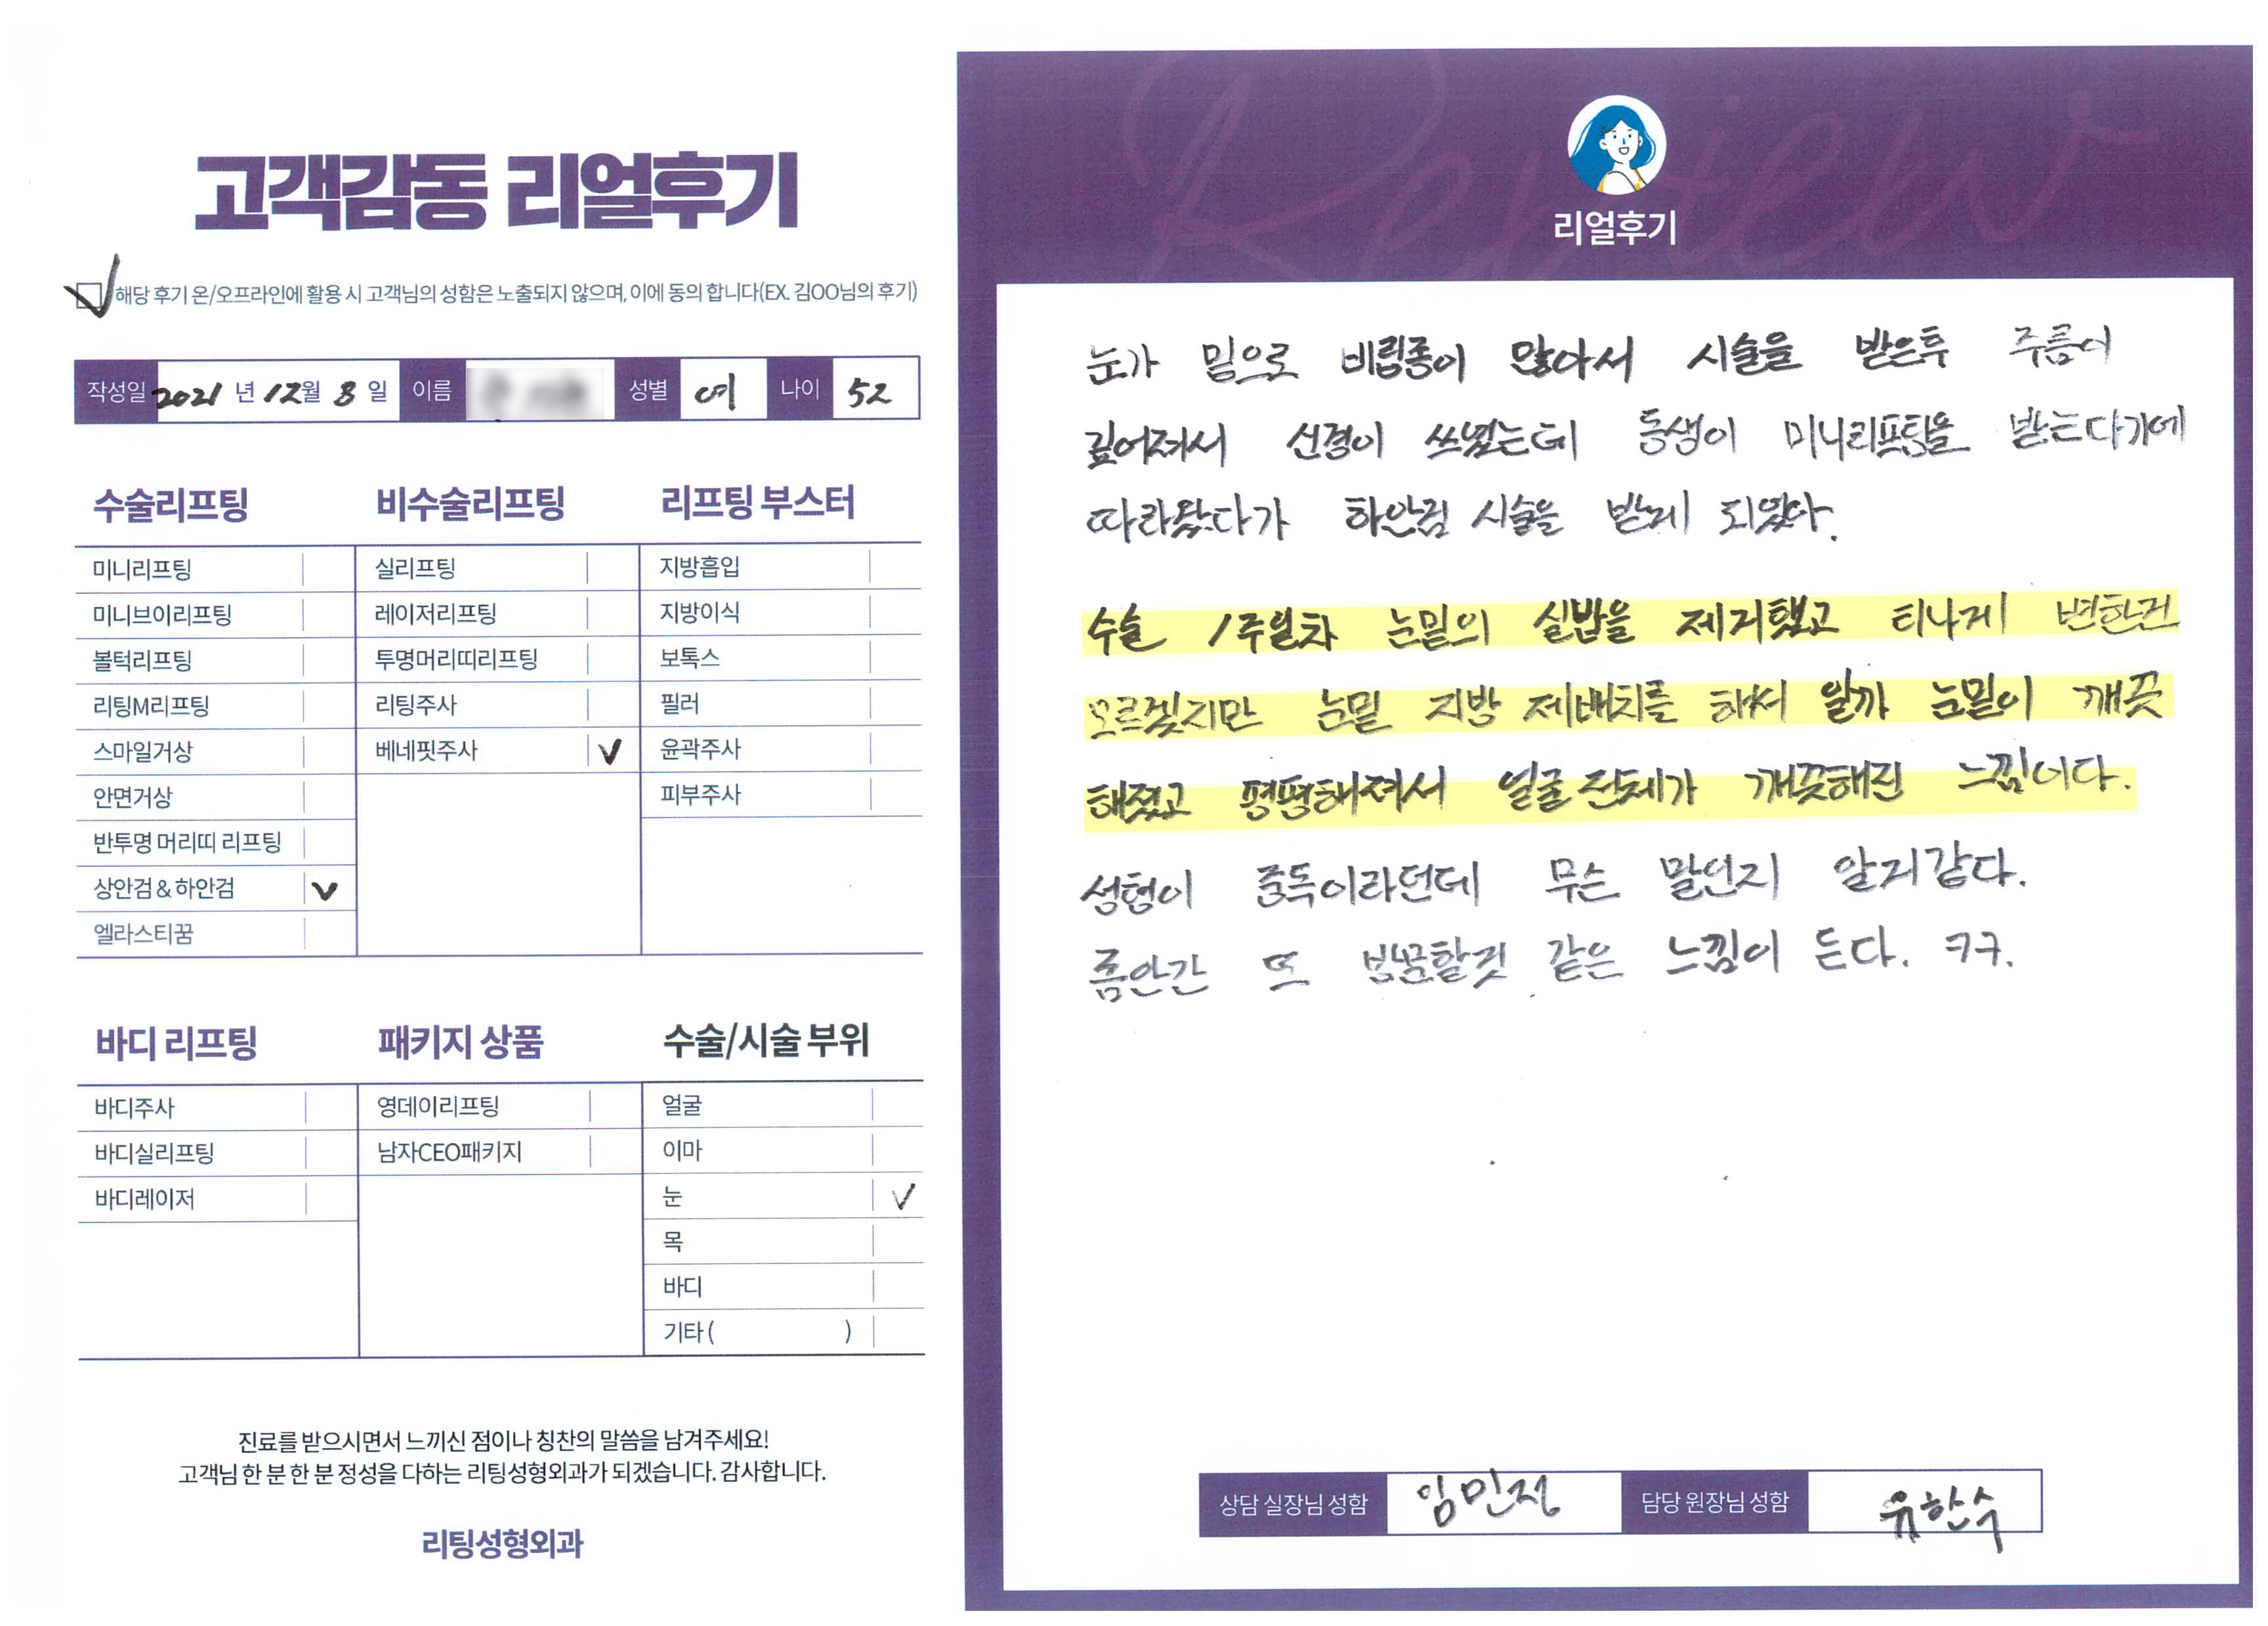 고객감동 리얼후기
해당 후기 온/오프라인에 활용 시 고객님의 성함은 노출되지 않으며, 이에 동의 합니다(EX. 김OO님의 후기)
작성일 2021 년 12월 8 일 이름 성별 여 나이 52
수술리프팅
미니리프팅
미니브이리프팅
볼턱리프팅
리팅M리프팅
스마일거상
안면거상
반투명 머리띠 리프팅
상안검 & 하안검 V
엘라스티꿈
비수술리프팅
실리프팅
레이저리프팅
투명머리띠리프팅
리팅주사
베네핏주사 V
리프팅 부스터
지방흡입
지방이식
보톡스
필러
윤곽주사
피부주사
바디 리프팅
바디주사
바디실리프팅
바디레이저
패키지 상품
영데이리프팅
남자CEO패키지
수술/시술 부위
얼굴
이마
눈 V
목
바디
기타 ( )
진료를 받으시면서 느끼신 점이나 칭찬의 말씀을 남겨주세요!
고객님 한 분 한 분 정성을 다하는 리팅성형외과가 되겠습니다. 감사합니다.
리팅성형외과
Review
리얼후기
눈가 밑으로 비립종이 많아서 시술을 받은후 주름이
깊어져서 신경이 쓰였는데 동생이 미니리프팅을 받는다기에
따라왔다가 하안검 시술을 받게 되었다.
수술 1주일차 눈밑의 실밥을 제거했고 티나게 변한건
모르겠지만 눈밑 지방 제배치를 해서 일까 눈밑이 깨끗
해졌고 평평해져서 얼굴 전체가 깨끗해진 느낌이다.
성형이 중독이라던데 무슨 말인지 알거같다.
좀안간 또 방문할것 같은 느낌이 든다. ㅋㅋ.
상담 실장님 성함 임민정 담당 원장님 성함 유한수